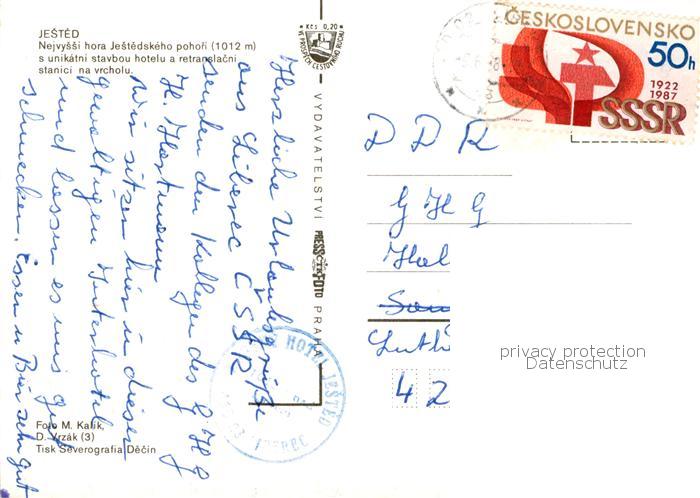 JEŠTĚD
Nejvyšší hora Ještědského pohoří (1012 m)
s unikátní stavbou hotelu a retranslační
stanicí na vrcholu.
Kčs 0,20
VE PROSPĚCH CESTOVNÍHO RUCHU
ČESKOSLOVENSKO
50h
1922
1987
SSSR
Herzliche Urlaubsgrüße
aus Liberec ČSSR
senden den Kollegen des GHG
H. Hartmann
Wir sitzen hier in dieser
gewaltigen Interhotel
und lassen es uns gut
schmecken. Essen u Bier sehr gut
VYDAVATELSTVÍ PRESSFOTO PRAHA
DDR
GHG
Hal
Luth
42
HOTEL JEŠTĚD
LIBEREC
privacy protection
Datenschutz
Foto M. Kalík,
D. Vrzák (3)
Tisk Severografia Děčín